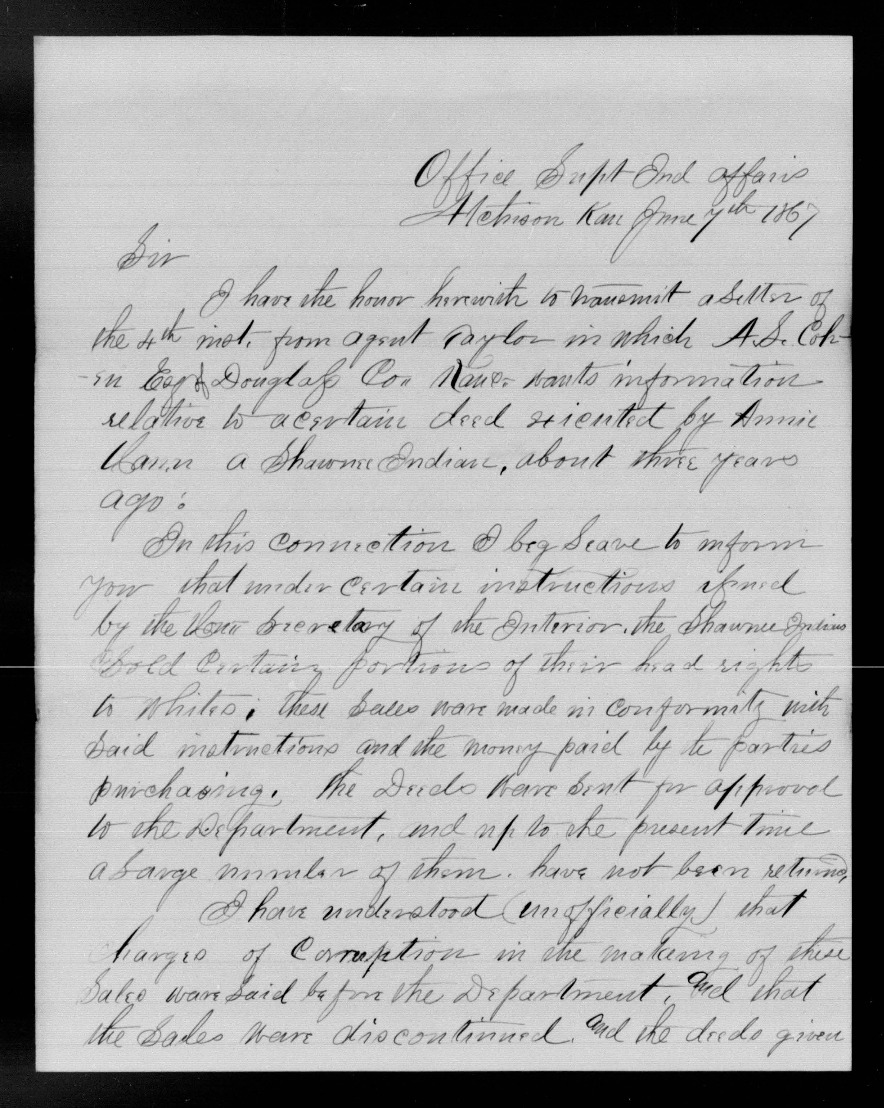 Office Supt Ind affairs
Atchison Kan June 7th 1867
Sir
I have the honor herewith to transmit a letter of
the 4th inst. from agent Taylor in which A.S. Coh-
-en Esq of Douglass Co Kans. wants information
relative to a certain deed executed by Annie
a Shawnee Indian, about three years
ago:
In this connection I beg leave to inform
you that under certain instructions issued
by the Hon Secretary of the Interior, the Shawnee Indians
Sold Certain portions of their head rights
to Whites; these Sales ware made in conformity with
Said instructions and the money paid by te parties
purchasing. The Deeds Ware Sent for approval
to the Department, and up to the present time
a large number of them. have not been returned,
I have understood (unofficially) that
charges of Corruption in the making of these
Sales ware laid before the Department, And that
the Sales Ware discontinued. And the deeds given